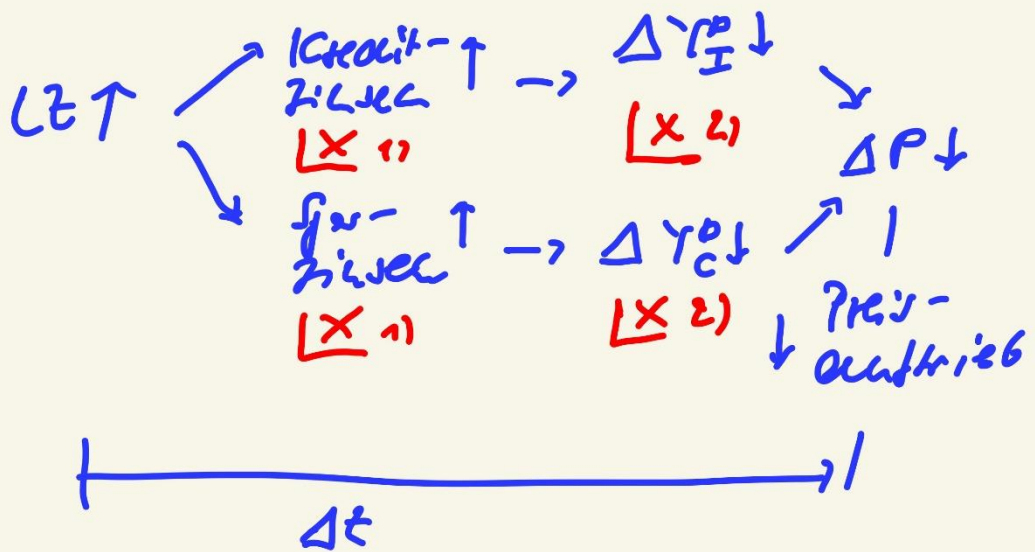 LZ ↑
Kredit- ↑
Zinsen
→ ΔY^D_I ↓
x 1)
x 2)
ΔP ↓
Spar- ↑
Zinsen
→ ΔY^D_C ↓
x 1)
x 2)
↓ Preis-
auftrieb
Δt